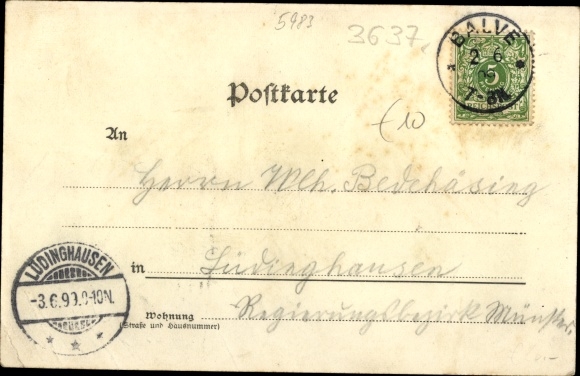 5983
3637.
BALVE
2 6
5
7-8N
Postkarte
€10
An
Herrn Wlh.
in Lüdinghausen
LÜDINGHAUSEN
-3.6.99.9-10N.
Wohnung Regierungsbezirk Münster.
(Straße und Hausnummer)